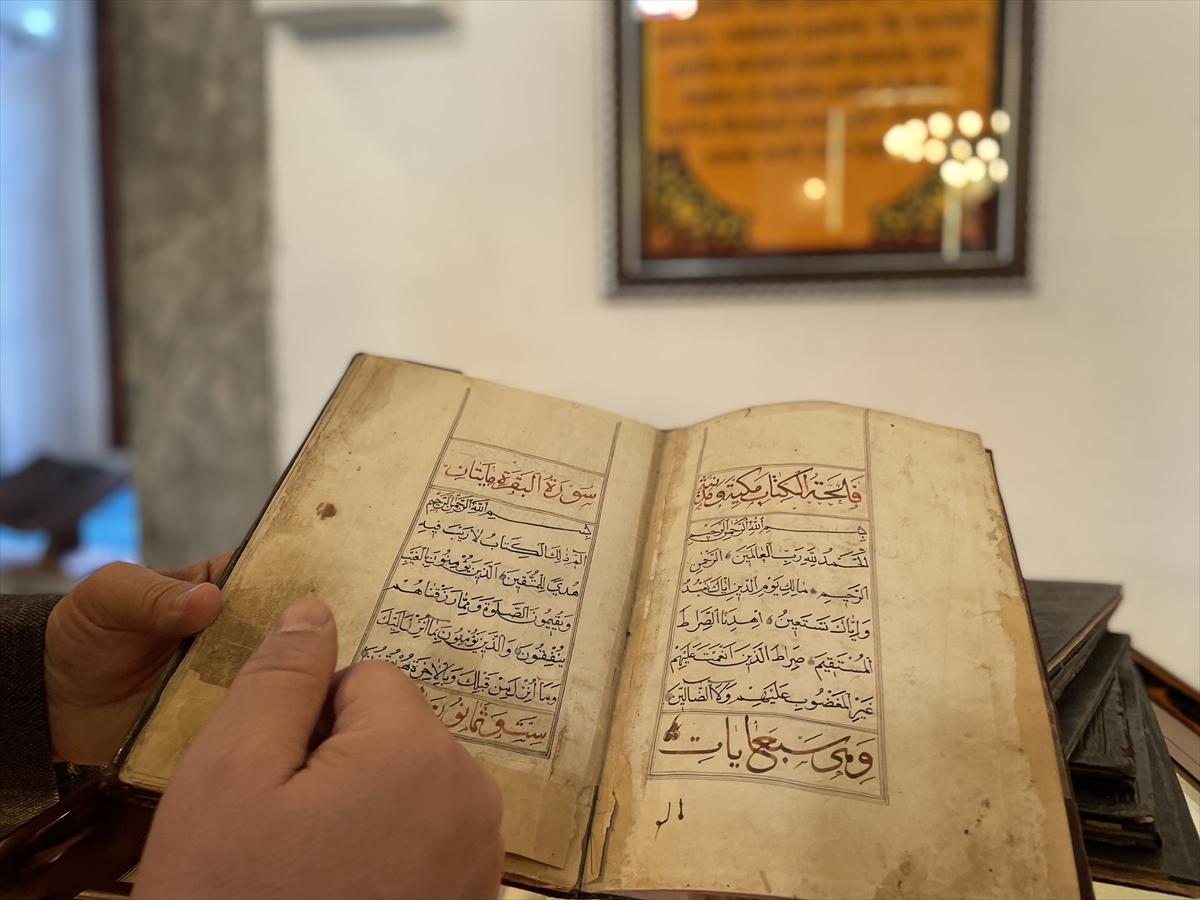 فاتحة الكتاب مكية ومدنية
بسم الله الرحمن الرحيم
الحمد لله رب العالمين الرحمن
الرحيم مالك يوم الدين اياك نعبد
واياك نستعين اهدنا الصراط
المستقيم صراط الذين انعمت عليهم
غير المغضوب عليهم ولا الضالين
وهي سبع ايات
الو
سورة البقرة مايتان
بسم الله الرحمن الرحيم
الم ذلك الكتاب لا ريب فيه
هدى للمتقين الذين يؤمنون بالغيب
ويقيمون الصلوة ومما رزقناهم
ينفقون والذين يؤمنون بما انزل اليك
وما انزل من قبلك وبالاخرة هم
ست وثمانون